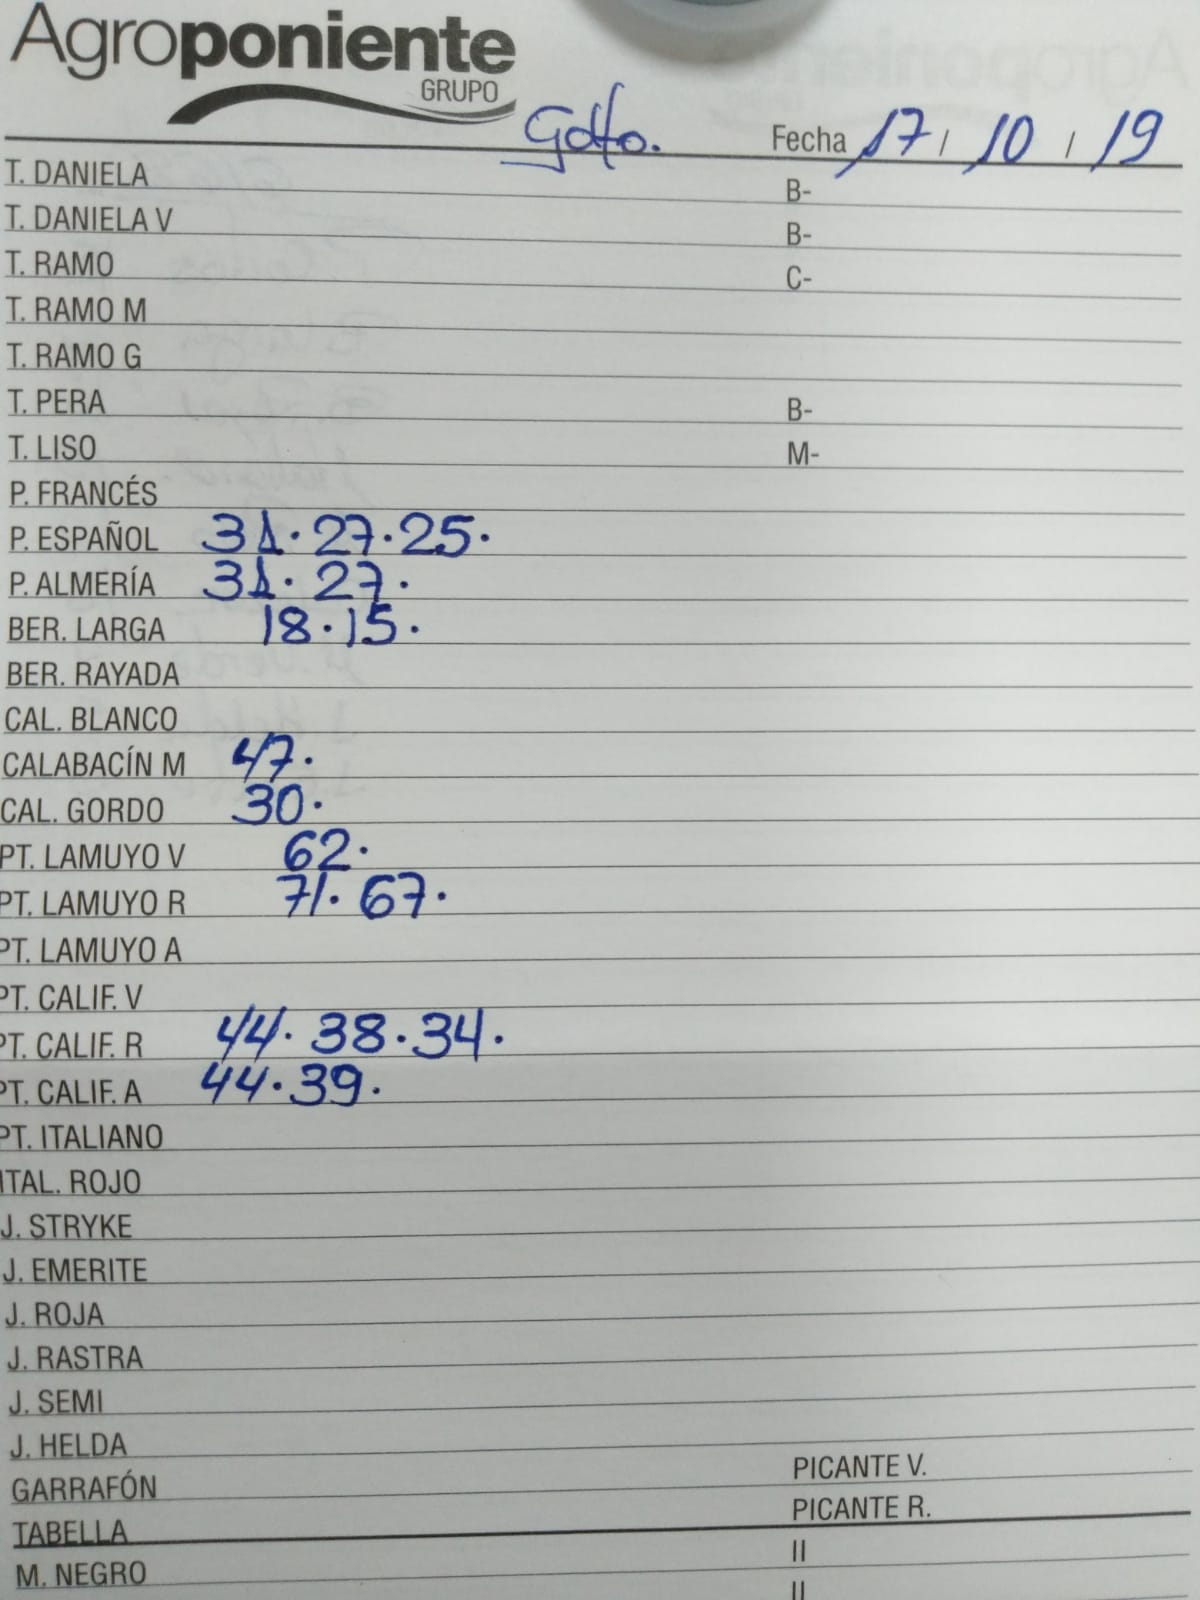 Agroponiente
GRUPO
Golfo. Fecha 17 / 10 / 19
T. DANIELA B-
T. DANIELA V B-
T. RAMO C-
T. RAMO M
T. RAMO G
T. PERA B-
T. LISO M-
P. FRANCÉS
P. ESPAÑOL 31.27.25.
P. ALMERÍA 31.27.
BER. LARGA 18.15.
BER. RAYADA
CAL. BLANCO
CALABACÍN M 47.
CAL. GORDO 30.
PT. LAMUYO V 62.
PT. LAMUYO R 71.67.
PT. LAMUYO A
PT. CALIF. V
PT. CALIF. R 44.38.34.
PT. CALIF. A 44.39.
PT. ITALIANO
ITAL. ROJO
J. STRYKE
J. EMERITE
J. ROJA
J. RASTRA
J. SEMI
J. HELDA
GARRAFÓN PICANTE V.
TABELLA PICANTE R.
M. NEGRO II
II